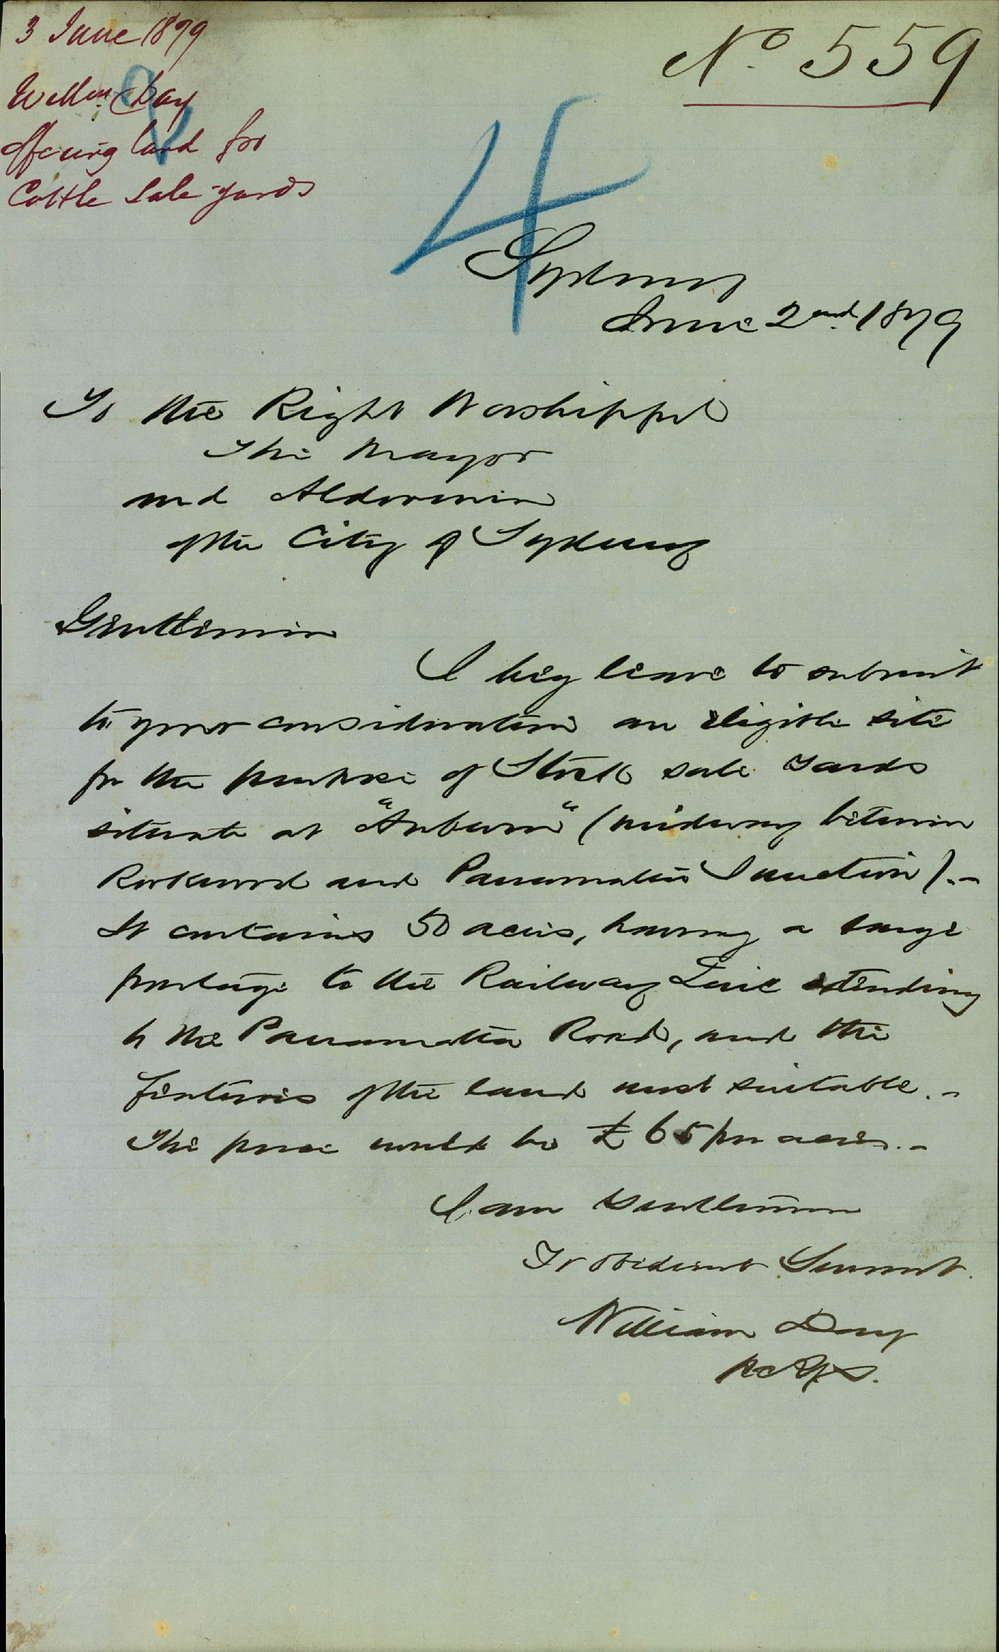 3 June 1879
Willm Day
offering land for
Cattle Sale yards
No. 559
4
Sydney
June 2nd 1879
To the Right Worshipful
The Mayor
and Aldermen
of the City of Sydney
Gentlemen
I beg leave to submit
to your consideration an eligible site
for the purpose of Stock sale yards
situate at "Auburn" (midway between
Rookwood and Parramatta Junction).-
It contains 50 acres, having a large
frontage to the Railway Line extending
to the Parramatta Road, and the
features of the land most suitable.-
The price would be £65 per acre.-
I am Gentlemen
Yr Obedient Servant.
William Day